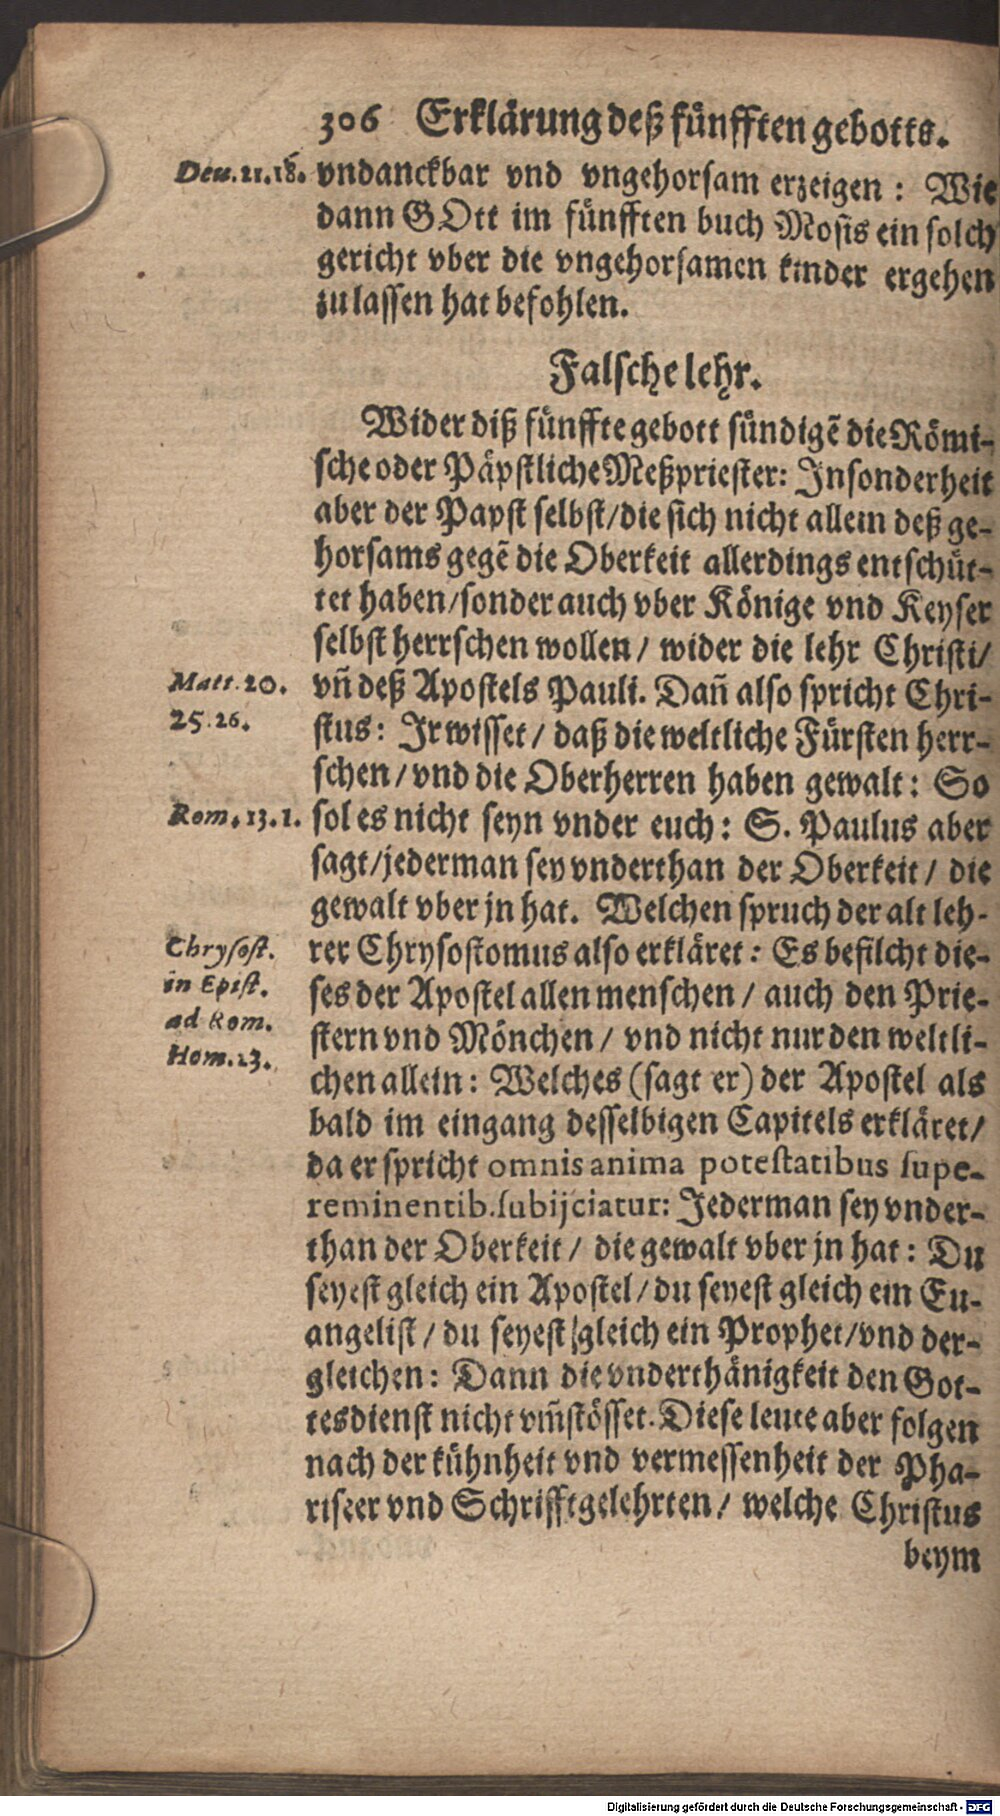 306 Erklärung deß fünfften gebotts.
Deu. 21. 18.
vndanckbar vnd vngehorsam erzeigen: Wie
dann GOtt im fünfften buch Mosis ein solch
gericht vber die vngehorsamen kinder ergehen
zu lassen hat befohlen.
Falsche lehr.
Wider diß fünffte gebott sündigẽ die Römi-
sche oder Päpstliche Meßpriester: Insonderheit
aber der Papst selbst/die sich nicht allein deß ge-
horsams gegẽ die Oberkeit allerdings entschüt-
tet haben/sonder auch vber Könige vnd Keyser
selbst herrschen wollen/ wider die lehr Christi/
Matt. 20.
25. 26.
vñ deß Apostels Pauli. Dañ also spricht Chri-
stus: Ir wisset/ daß die weltliche Fürsten herr-
schen/vnd die Oberherren haben gewalt: So
Rom. 13. 1.
sol es nicht seyn vnder euch: S. Paulus aber
sagt/jederman sey vnderthan der Oberkeit/ die
gewalt vber jn hat. Welchen spruch der alt leh-
Chrysost.
in Epist.
ad Rom.
Hom. 23.
rer Chrysostomus also erkläret: Es befilcht die-
ses der Apostel allen menschen/ auch den Prie-
stern vnd Mönchen/ vnd nicht nur den weltli-
chen allein: Welches (sagt er) der Apostel als
bald im eingang desselbigen Capitels erkläret/
da er spricht omnis anima potestatibus supe-
reminentib. subijciatur: Jederman sey vnder-
than der Oberkeit/ die gewalt vber jn hat: Du
seyest gleich ein Apostel/du seyest gleich ein Eu-
angelist/ du seyest gleich ein Prophet/vnd der-
gleichen: Dann die vnderthänigkeit den Got-
tesdienst nicht vm̃stösset. Diese leute aber folgen
nach der kühnheit vnd vermessenheit der Pha-
riseer vnd Schrifftgelehrten/ welche Christus
beym
Digitalisierung gefördert durch die Deutsche Forschungsgemeinschaft - DFG